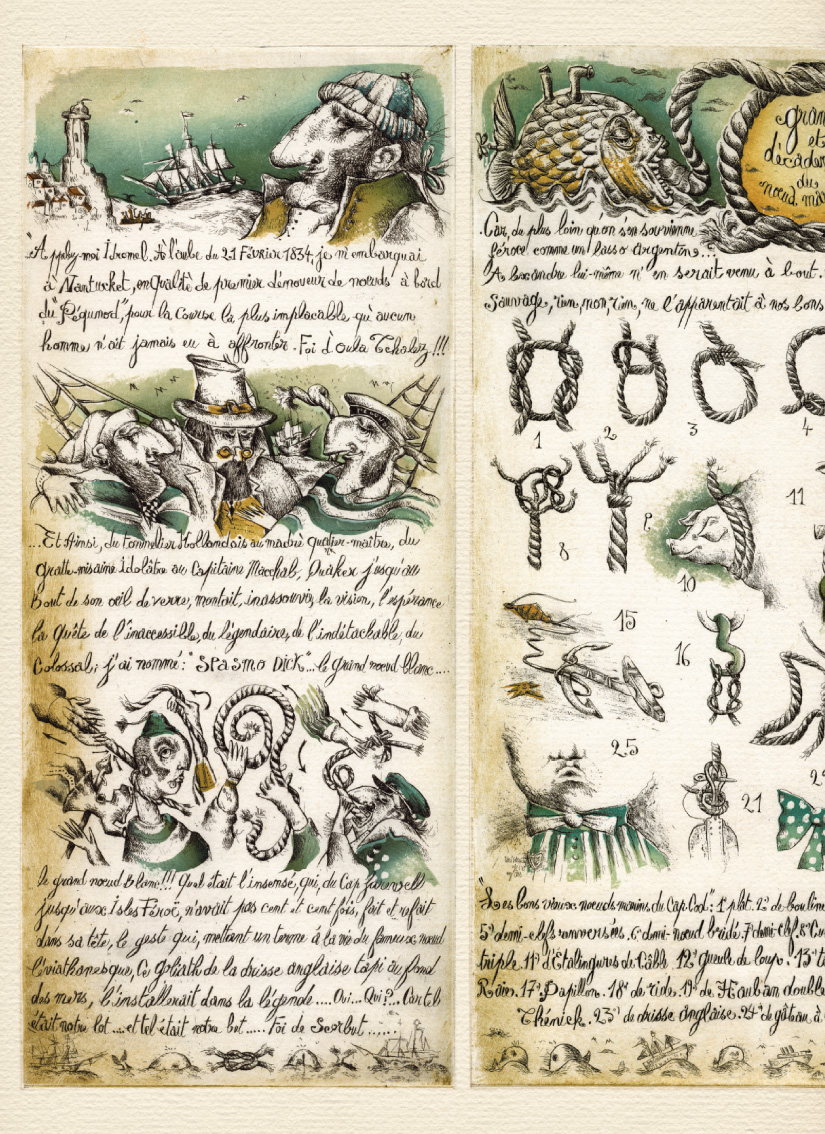 "Appelez-moi Idromel. A l'aube du 21 Février 1834, je m'embarquai
à Nantucket, en qualité de premier dénoueur de nœuds à bord
du "Péquod", pour la course la plus implacable qu'aucun
homme n'ait jamais eu à affronter. Foi d'Oula Tchalez!!!
...Et Ainsi, du tonnelier Hollandais au madré quartier-maître, du
gratte-misaine idolâtre au Capitaine Macchab, Quaker jusqu'au
bout de son œil de verre, montait, inassouvis, la vision, l'espérance
la quête de l'inaccessible, du légendaire, de l'indétachable, du
Colossal; j'ai nommé: "SPASMO DICK"... le grand nœud blanc....
le grand nœud blanc!!! Quel était l'insensé, qui, du Cap Farewell
jusqu'aux Isles Féroë, n'avait pas cent et cent fois, fait et refait
dans sa tête, le geste qui, mettant un terme à la vie du fameux nœud
léviathanesque, ce Goliath de la drisse anglaise tapi au fond
des mers, l'installerait dans la légende.... Oui... Qui?... Car tel
était notre lot.... et tel était notre but..... Foi de Scorbut......
et
du
Car, de plus loin qu'on s'en souvienne
féroce comme un lasso Argentin...?
Alexandre lui-même n'en serait venu à bout.
Sauvage, rien, non, rien, ne l'apparentait à nos bons
1 2 3 4
8 9 10 11
15 16
25 21
"Les bons vieux nœuds marins du Cap Cod": 1° plat. 2° de bouline
5° demi-clefs renversées. 6° demi-nœud bridé. 7° demi-clef.
triple. 11° d'Etalingures de Câble. 12° gueule de loup. 13°
17° Papillon. 18° de ride. 19° de Hauban double
23° de drisse Anglaise. 24° de gâteau à